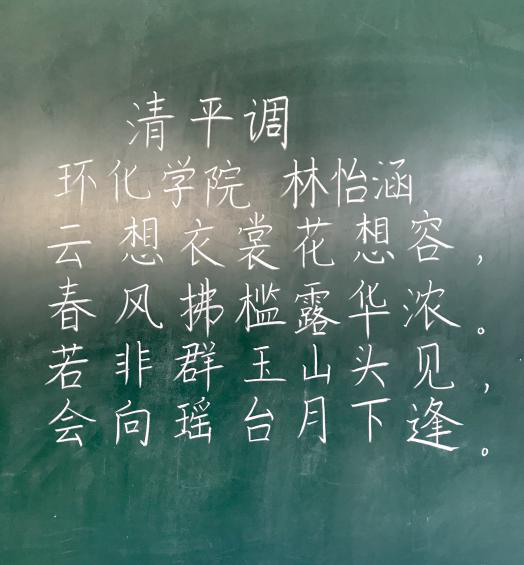 清平调
环化学院 林怡涵
云想衣裳花想容，
春风拂槛露华浓。
若非群玉山头见，
会向瑶台月下逢。